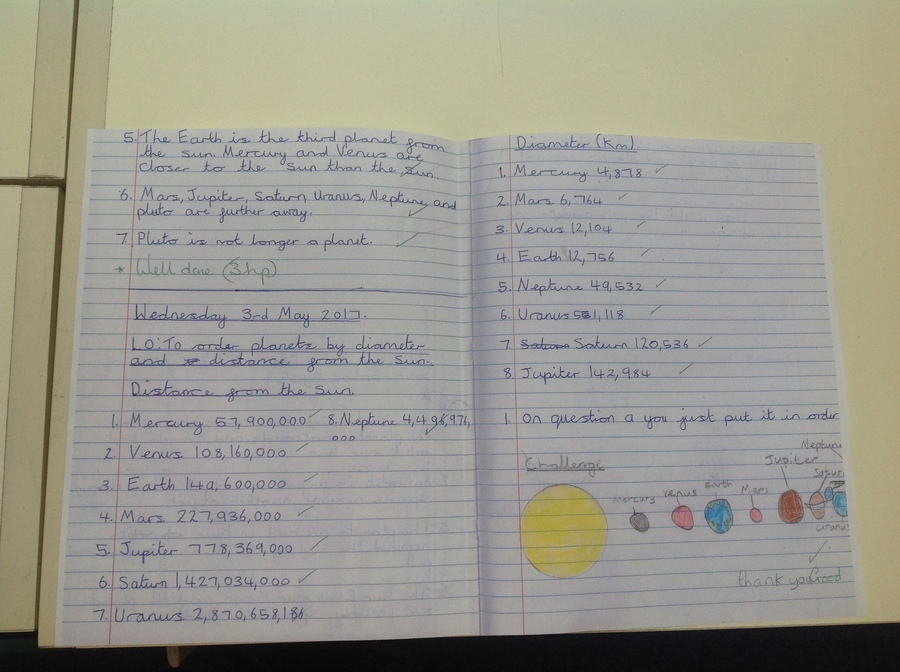 5. The Earth is the third planet from
the sun. Mercury and Venus are
closer to the Sun than the sun.
6. Mars, Jupiter, Saturn, Uranus, Neptune, and
pluto are further away.
7. Pluto is not longer a planet.
* Well done (3hp)
Wednesday 3rd May 2017.
LO:To order planets by diameter
and distance from the Sun.
Distance from the Sun.
1. Mercury 57,900,000
8. Neptune 4,496,976,
000
2. Venus 108,160,000
3. Earth 149,600,000
4. Mars 227,936,000
5. Jupiter 778,369,000
6. Saturn 1,427,034,000
7. Uranus 2,870,658,186
Diameter (Km)
1. Mercury 4,878
2. Mars 6,764
3. Venus 12,104
4. Earth 12,756
5. Neptune 49,532
6. Uranus 51,118
7. Saturn 120,536
8. Jupiter 142,984
1. On question a you just put it in order
Challenge
Mercury
Venus
Earth
Mars
Jupiter
Saturn
Uranus
Neptune
thank you
Good